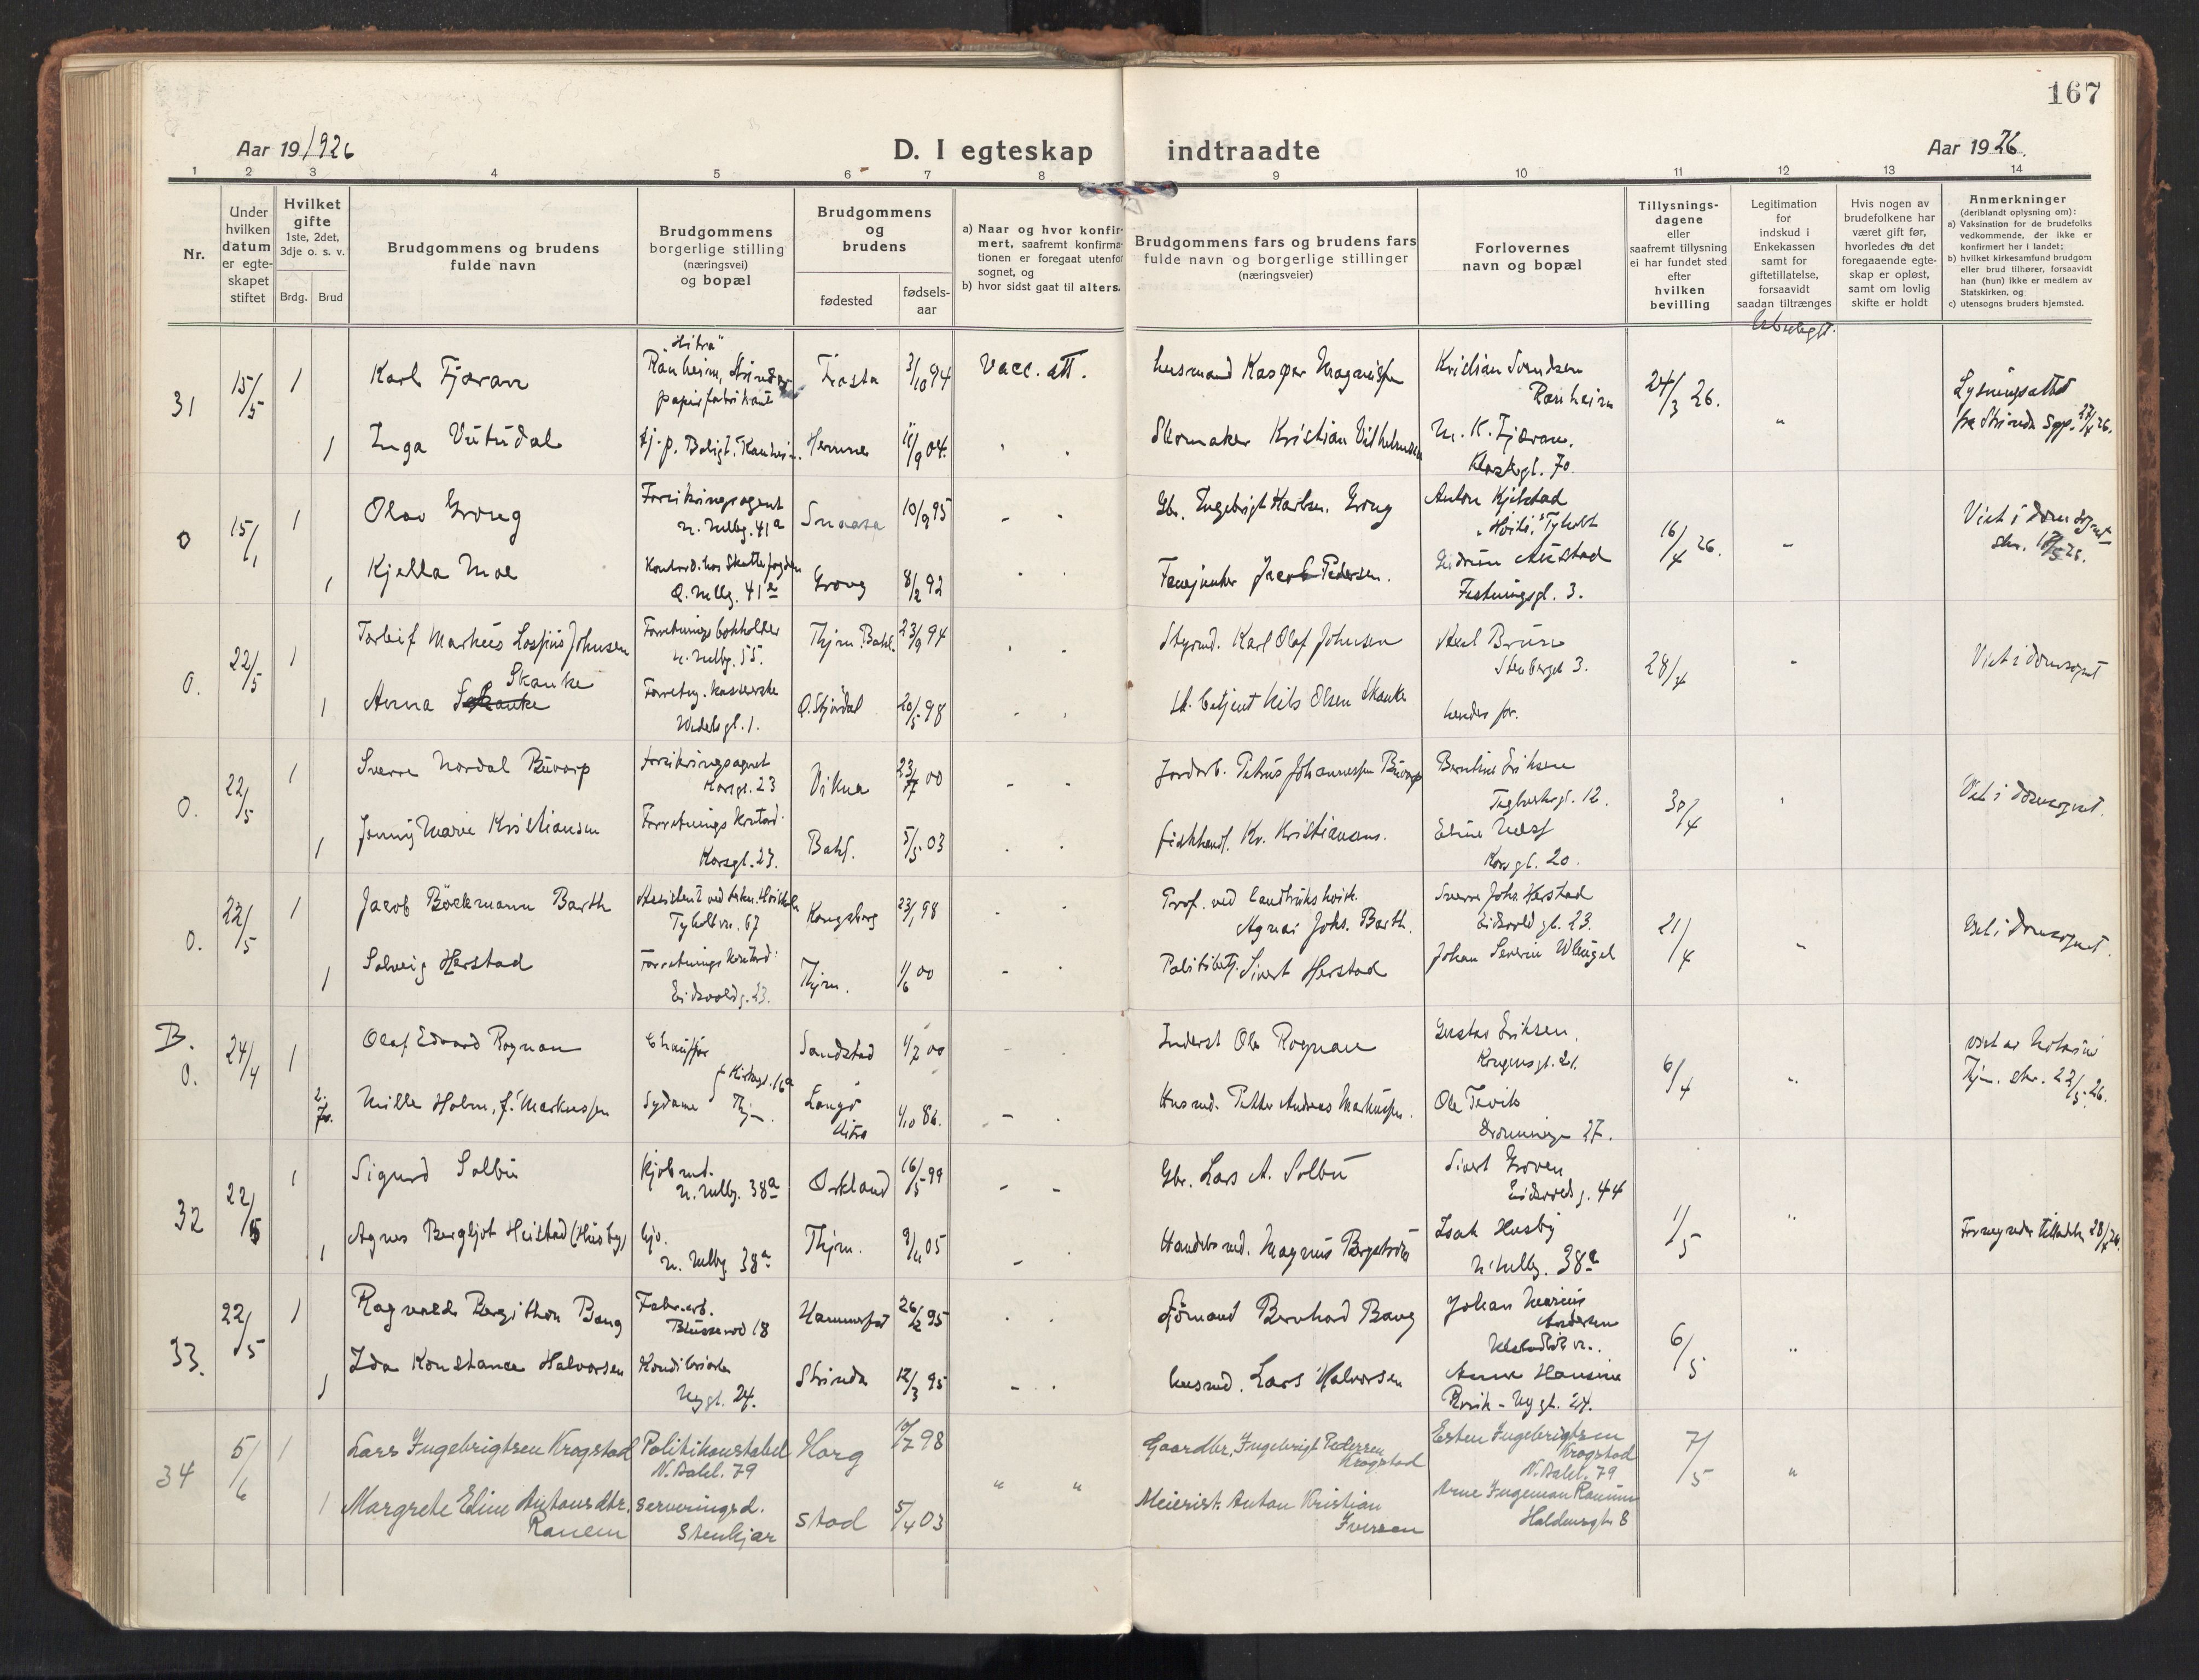 167
Aar 19/926
D. I egteskap indtraadte
Aar 1926.
1 2 3 4 5 6 7 8 9 10 11 12 13 14
Nr.
Under hvilken datum er egte-skapet stiftet
Hvilket gifte
1ste, 2det, 3dje o. s. v.
Brdg. Brud
Brudgommens og brudens
fulde navn
Brudgommens
borgerlige stilling
(næringsvei)
og bopæl
Brudgommens
og
brudens
fødested
fødsels-
aar
a) Naar og hvor konfir-
mert, saafremt konfirma-
tionen er foregaat utenfor
sognet, og
b) hvor sidst gaat til alters.
Brudgommens fars og brudens fars
fulde navn og borgerlige stillinger
(næringsveier)
Forlovernes
navn og bopæl
Tillysnings-
dagene
eller
saafremt tillysning
ei har fundet sted
efter
hvilken
bevilling
Legitimation
for
indskud i
Enkekassen
samt for
giftetillatelse,
forsaavidt
saadan tiltrænges
Hvis nogen av
brudefolkene har
været gift før,
hvorledes da det
foregaaende egte-
skap er opløst,
samt om lovlig
skifte er holdt
Anmerkninger
(deriblandt oplysning om):
a) Vaksination for de brudefolks
vedkommende, der ikke er
konfirmert her i landet;
b) hvilket kirkesamfund brudgom
eller brud tilhører, forsaavidt
han (hun) ikke er medlem av
Statskirken, og
c) utensogns bruders hjemsted.
31 15/5 1 Karl Fjæran "Hitra" Ranheim, Strinda Frosta 3/10 94 Vacc. att. husmand Kasper Kristian Svendsen Ranheim 24/3 26. "
1 Inga Hemne 11/9 04. Skomaker Kristian Vilhelmsen M. K. Fjæran. 70.
0 15/1 1 Olav Grong Forsikringsagent N. Mellbg. 41a Snaasa 10/9 95 - - Gbr. Ingebrigt Karlsen. Grong Anton Kjelstad Tyholt 16/4 26. - Viet i domsognet
1 Kjella Moe Ø. Mellbg. 41a Grong 8/2 92 Fanejunker Jacob Pedersen. Austad Festningsgt. 3.
0. 22/5 1 Torleif Markus Johnsen N. Mellbg. 55. Thjm. Bakl. 23/9 94 Styrmd. Karl Olaf Johnsen Axel Bruun 3. 28/4 - Viet i domsognet
1 Anna Skanke Ø. Stjørdal 20/5 98 Nils Olsen Skanke hendes far.
0. 22/5 1 Sverre Nordal Buvarp Forsikringsagent Korsgt. 23 Vikna 23/7 00 - - Jordarb. Petrus Johannessen Buvarp Eriksen 12. 30/4 Viet i domsognet.
1 Jenny Marie Kristiansen Forretnings kontord. Korsgt. 23. Bakl. 5/5 03 Kr. Kristiansen. Korsgt. 20.
0. 22/5 1 Jacob Böckmann Barth Assistent ved tekn. Høiskole Tyholtvn. 67 Kongsberg 23/1 98 Prof. ved landbrukshøisk. Agnar Johs. Barth. Sverre Johs. Herstad Eidsvoldgt. 23. 21/4 - Viet i domsognet.
1 Solveig Herstad Forretnings kontord. Eidsvoldg. 23. Thjm. 1/6 00 - Politibetj. Sivert Herstad Johan Severin
B. 0. 24/4 1 Olaf Edvard Rognan Chauffør Sandstad 1/7 00 - Inderst Ole Rognan Gustav Eriksen. Kongensgt. 21. 6/4 viet av Notarius Thjm. 22/5 26.
2. Mille Holm, f. Markussen Sydame Thjm. Hitra 1/10 86. - Husmd. Petter Andreas Markussen. Ole Dronningg. 27.
32 22/5 1 Sigurd Solbu Kjøbmd. N. Mellbg. 38a Orkland 16/5 99 - - Gbr. Lars A. Solbu Sivert Groven Eidsvoldg. 44 1/5 "
1 Agnes Bergljot Heistad (Husby) N. Mellbg. 38a Thjm. 05 - Handelsmd. Magnus Bergström Isak Husby N. Mellbg. 38a
33. 22/5 1 Ragnvald Bang Fabr. arb. 18 Hammerfest 26/12 95 Sjømand Bernhard Bang Johan Marius Andersen 6/5 "
1 Ida Konstance Halvorsen Nygt. 24. Strinda 12/3 95 - husmd. Lars Halvorsen Anne Hansine Nygt. 24.
34 5/6 1 Lars Ingebrigtsen Krogstad Politikonstabel N. Bakl. 79 Horg 12/7 98 " " Gaardbr. Ingebrigt Pedersen Krogstad Esten Ingebrigtsen Krogstad N. Bakl. 79 7/5 "
1 Margrete Eline Antonsdtr. Ranem Serveringsd. Stenkjær Stod 5/4 03 Meierist. Anton Kristian Iversen Arne Ingeman Ranum 8